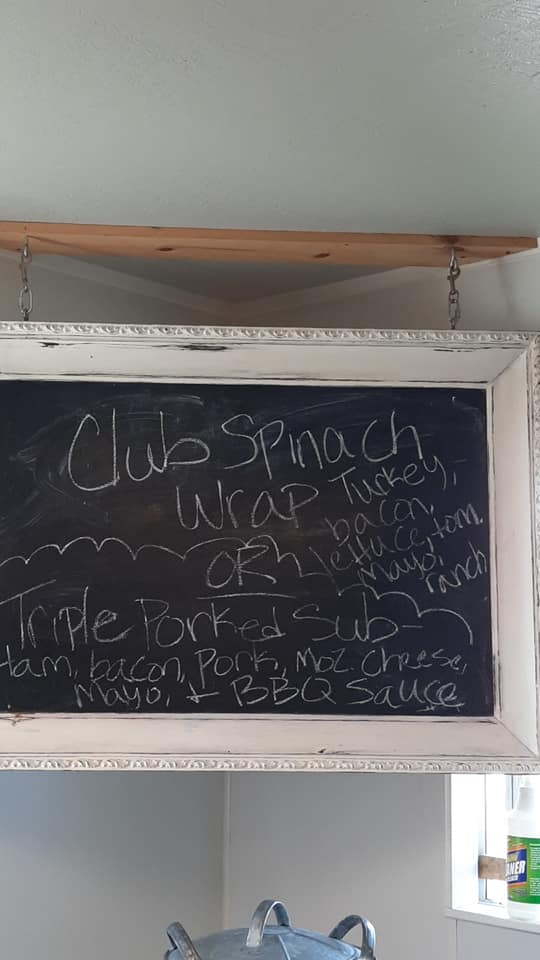 Club Spinach
Wrap Turkey,
bacon,
lettuce, tom.
Mayo,
ranch
OR
Triple Porked Sub-
Ham, bacon, Pork, Moz. Cheese,
Mayo, + BBQ Sauce